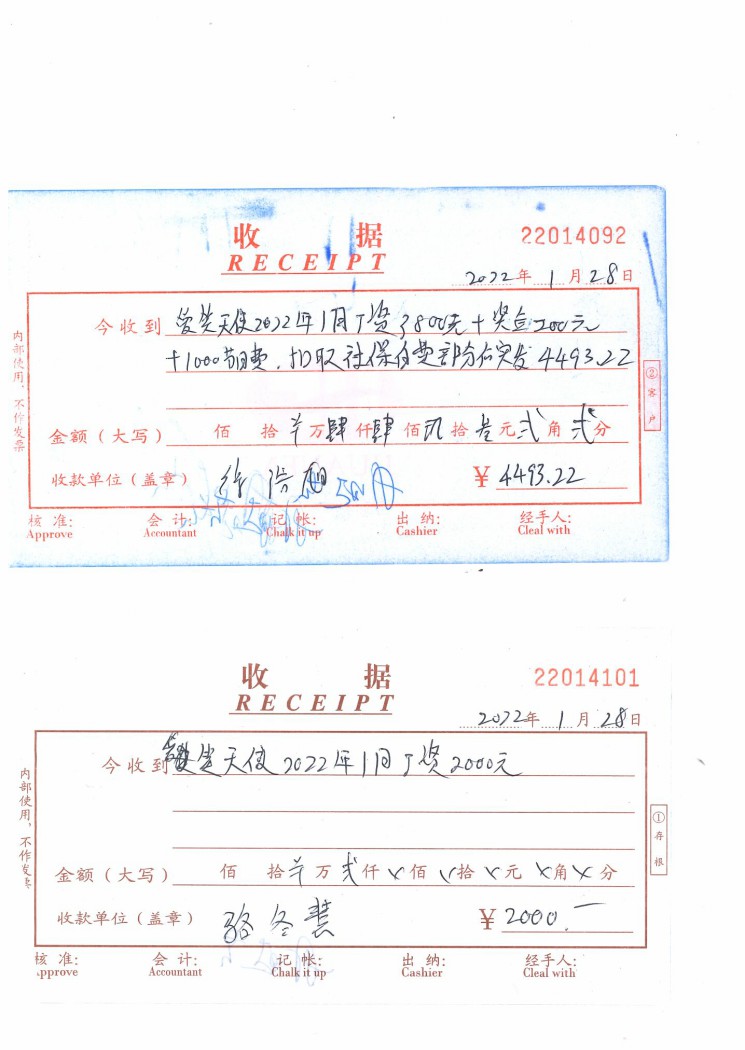 收 据
22014092
RECEIPT
2022年1月28日
今收到 爱笑天使2022年1月工资3800元+奖金200元
+1000节日费,扣取社保自费部分后实发4493.22
金额(大写) 佰 拾 万肆仟肆佰玖拾叁元贰角贰分
收款单位(盖章)
¥4493.22
核 准: 会 计: 记 帐: 出 纳: 经手人:
Approve Accountant Chalk it up Cashier Cleal with
内部使用,不作发票
②客户
收 据
22014101
RECEIPT
2022年1月28日
今收到 爱笑天使2022年1月工资2000元
金额(大写) 佰 拾 万贰仟×佰×拾×元×角×分
收款单位(盖章) 骆冬慧
¥2000.—
核 准: 会 计: 记 帐: 出 纳: 经手人:
Approve Accountant Chalk it up Cashier Cleal with
内部使用,不作发票
①存根